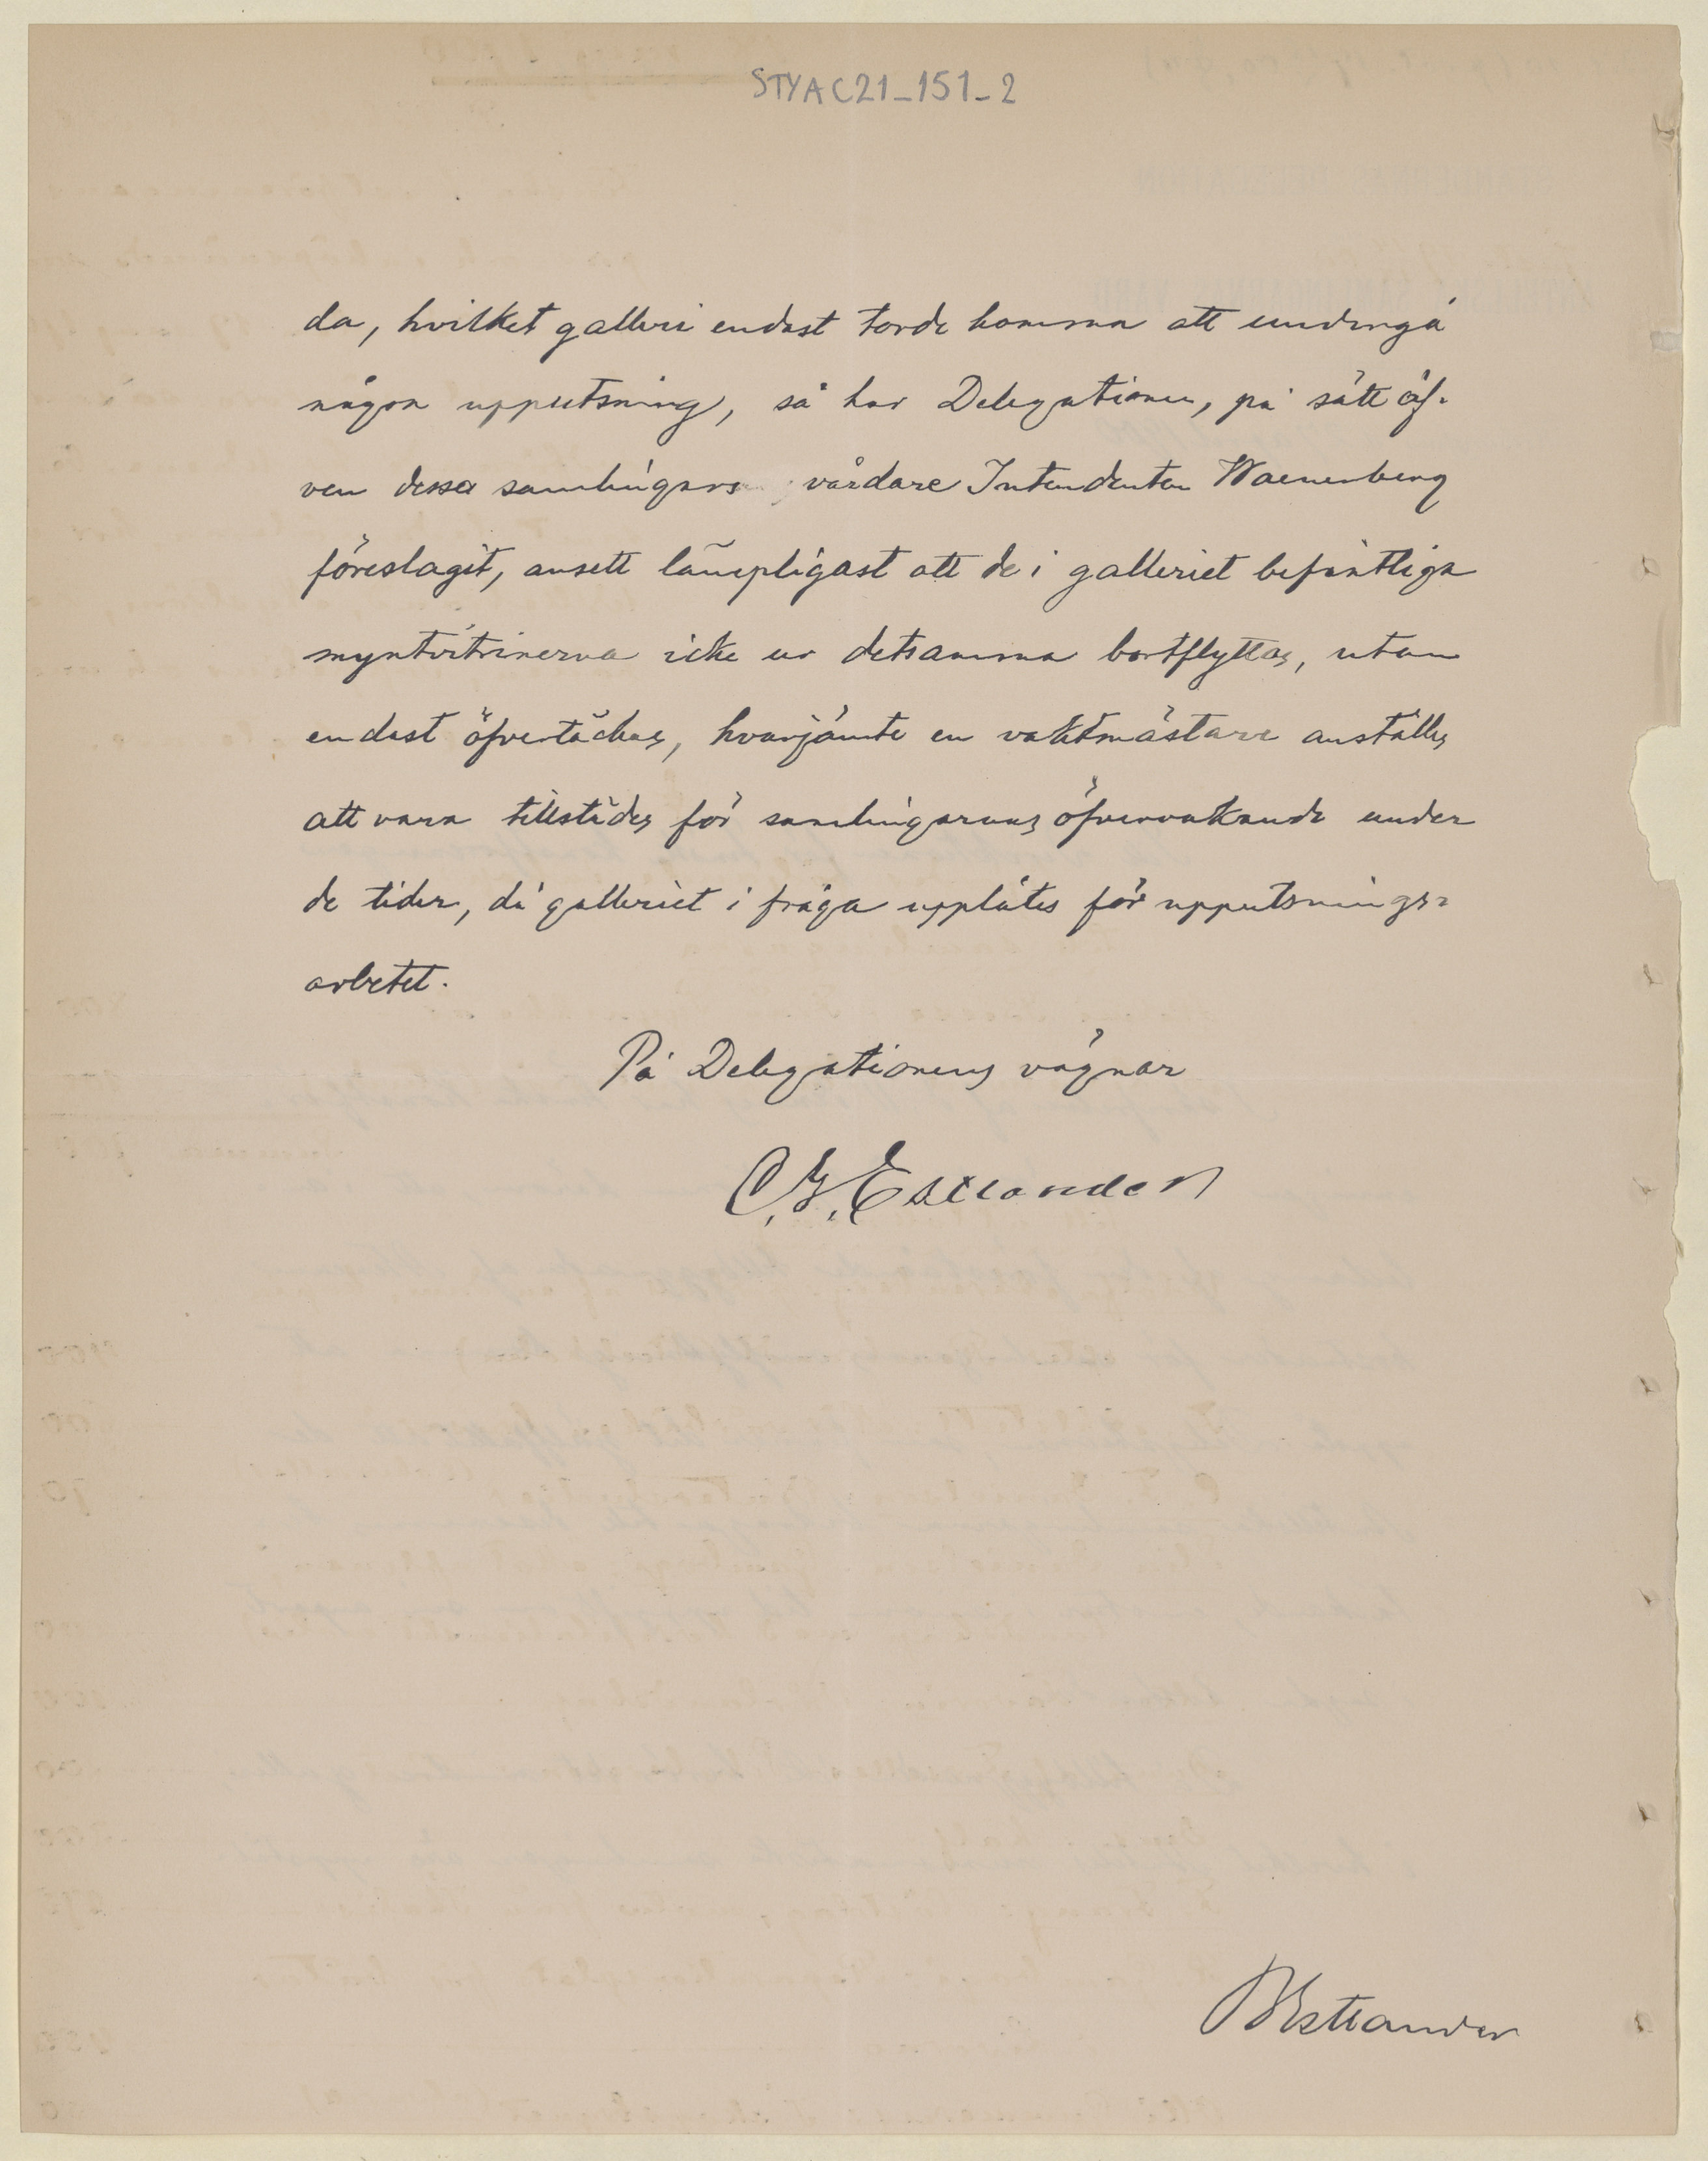 STYAC21_151_2
da, hvilket galleri endast torde komma att undergå
någon upputsning, så har Delegationen, på sätt äf-
ven dessa samlingars vårdare Intendenten Waenerberg
föreslagit, ansett lämpligast att de i galleriet befintliga
myntvitrinerna icke ur detsamma bortflyttas, utan
endast öfvertäckas, hvarjämte en vaktmästare anställes
att vara tillstädes för samlingarnas öfvervakande under
de tider, då galleriet i fråga upplåtes för upputsnings-
arbetet.
På Delegationens vägnar
C. G. Estlander
BEstlander